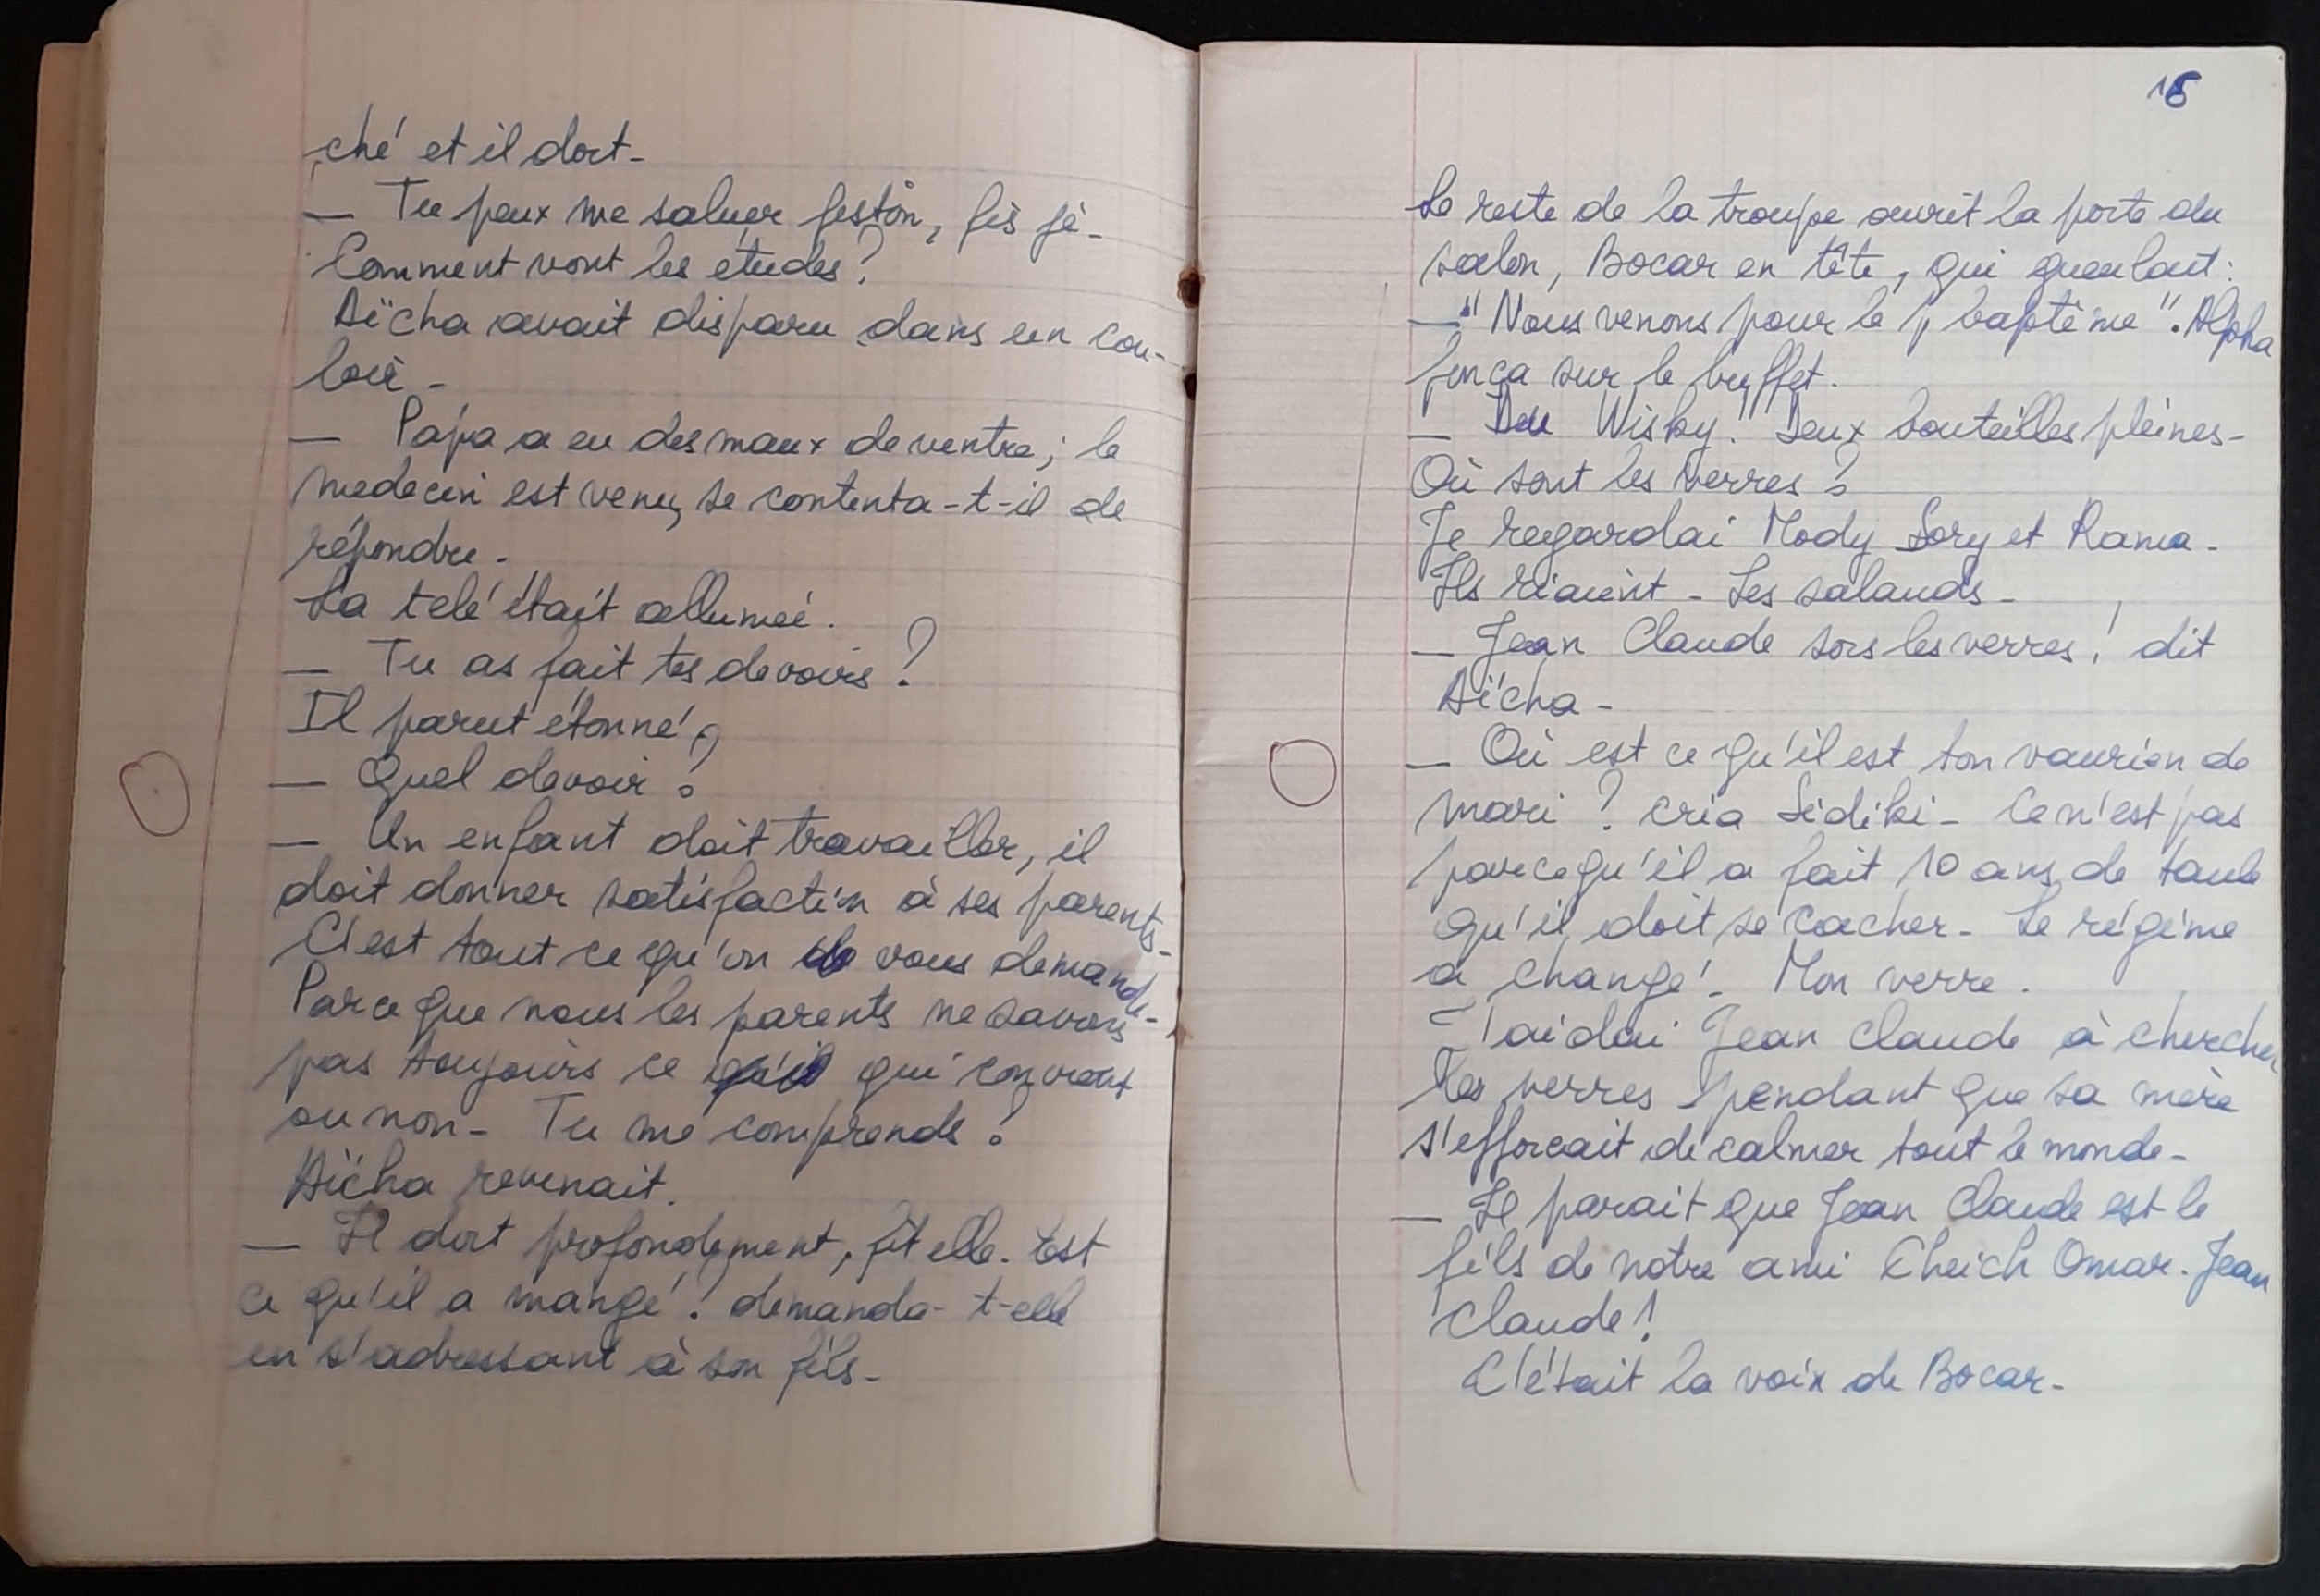 ché et il dort-
— Tu peux me saluer fiston, fis je-
Comment vont les études?
Aïcha avait disparu dans un cou-
loir -
— Papa a eu des maux de ventre; le
medecin est venu, se contenta-t-il de
répondre -
La telé était allumée.
— Tu as fait tes devoirs?
Il parut étonné,
— Quel devoir?
— Un enfant doit travailler, il
doit donner satisfaction à ses parents-
C'est tout ce qu'on vous demande-
Parce que nous les parents ne savons
pas toujours ce qui convient
ou non- Tu me comprends?
Aïcha revenait.
— Il dort profondement, fit elle. Est
ce qu'il a mangé? demanda-t-elle
en s'adressant à son fils-
18
Le reste de la troupe ouvrit la porte du
salon, Bocar en tête, qui gueulait:
—" Nous venons pour le baptême". Alpha
fonça sur le buffet.
— Du Wisky! Deux bouteilles pleines-
Où sont les verres?
Je regardai Mody Sory et Rama-
Ils riaient - Les salauds-
— Jean Claude sors les verres! dit
Aïcha-
— Où est ce qu'il est ton vaurien de
mari? cria Sidiki- Ce n'est pas
parce qu'il a fait 10 ans de taule
qu'il doit se cacher- Le régime
a changé- Mon verre.
J'aidai Jean Claude à chercher
les verres pendant que sa mère
s'efforcait de calmer tout le monde-
— Il parait que Jean Claude est le
fils de notre ami Cheich Omar. Jean
Claude!
C'était la voix de Bocar-